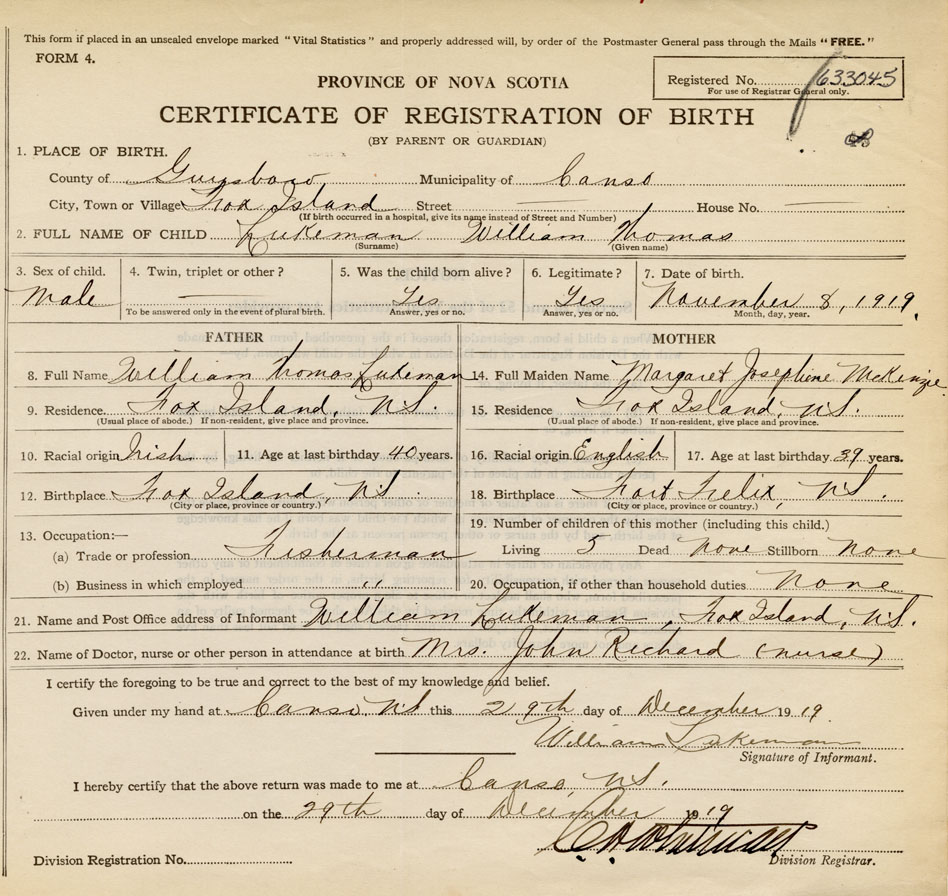 This form if placed in an unsealed envelope marked "Vital Statistics" and properly addressed will, by order of the Postmaster General pass through the Mails "FREE."
FORM 4.
PROVINCE OF NOVA SCOTIA
Registered No. 633045
For use of Registrar General only.
CERTIFICATE OF REGISTRATION OF BIRTH
(BY PARENT OR GUARDIAN)
1. PLACE OF BIRTH.
County of Guysboro Municipality of Canso
City, Town or Village Fox Island Street — House No. —
(If birth occurred in a hospital, give its name instead of Street and Number)
2. FULL NAME OF CHILD Lukeman William Thomas
(Surname) (Given name)
3. Sex of child. 4. Twin, triplet or other? 5. Was the child born alive? 6. Legitimate? 7. Date of birth.
Male — Yes Yes November 8, 1919.
To be answered only in the event of plural birth. Answer, yes or no. Answer, yes or no. Month, day, year.
FATHER MOTHER
8. Full Name William Thomas Lukeman 14. Full Maiden Name Margaret Josephine McKenzie
9. Residence. Fox Island, N.S. 15. Residence Fox Island, N.S.
(Usual place of abode.) If non-resident, give place and province. (Usual place of abode.) If non-resident, give place and province.
10. Racial origin Irish 11. Age at last birthday 40 years. 16. Racial origin English 17. Age at last birthday 39 years.
12. Birthplace Fox Island, N.S. 18. Birthplace Port Felix, N.S.
(City or place, province or country.) (City or place, province or country.)
19. Number of children of this mother (including this child.)
13. Occupation:—
(a) Trade or profession Fisherman Living 5 Dead None Stillborn None
(b) Business in which employed " 20. Occupation, if other than household duties None
21. Name and Post Office address of Informant William Lukeman, Fox Island, N.S.
22. Name of Doctor, nurse or other person in attendance at birth Mrs. John Richard (nurse)
I certify the foregoing to be true and correct to the best of my knowledge and belief.
Given under my hand at Canso, N.S this 29th day of December 1919
William Lukeman
Signature of Informant.
I hereby certify that the above return was made to me at Canso, N.S.
on the 29th day of December 1919
Division Registration No. Division Registrar.